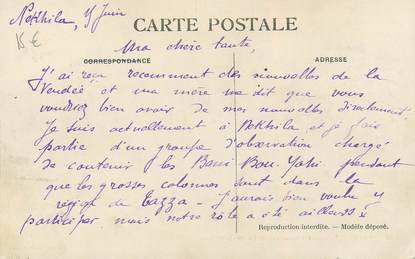 Nekhila, 4 Juin
15 €
CARTE POSTALE
Ma chère tante,
CORRESPONDANCE
ADRESSE
J'ai reçu récemment des nouvelles de la
Vendée et ma mère me dit que vous
voudriez bien avoir de mes nouvelles directement.
Je suis actuellement à Nekhila et je fais
partie d'un groupe d'observation chargé
de contenir les Beni Bou Yahi pendant
que les grosses colonnes sont dans la
région de Tazza - J'aurais bien voulu y
participer mais notre rôle a été ailleurs
Reproduction interdite. — Modèle déposé.